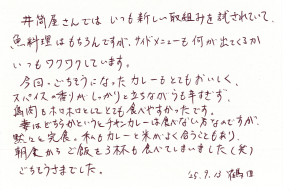 井筒屋さんでは いつも新しい取組みを試されていて、
魚料理はもちろんですが、サイドメニューも何が出てくるか
いつもワクワクしています。
今回、ごちそうになったカレーもとてもおいしく、
スパイスの香りがしっかりと立ちながらも辛すぎず、
鶏肉もホロホロとしてとても食べやすかったです。
妻はどちらかというとチキンカレーは食べない方なのですが、
黙々と完食。私もカレーと米がよく合うこともあり、
朝食からご飯を3杯も食べてしまいました(笑)
ごちそうさまでした。
'25.9.13 鶴田